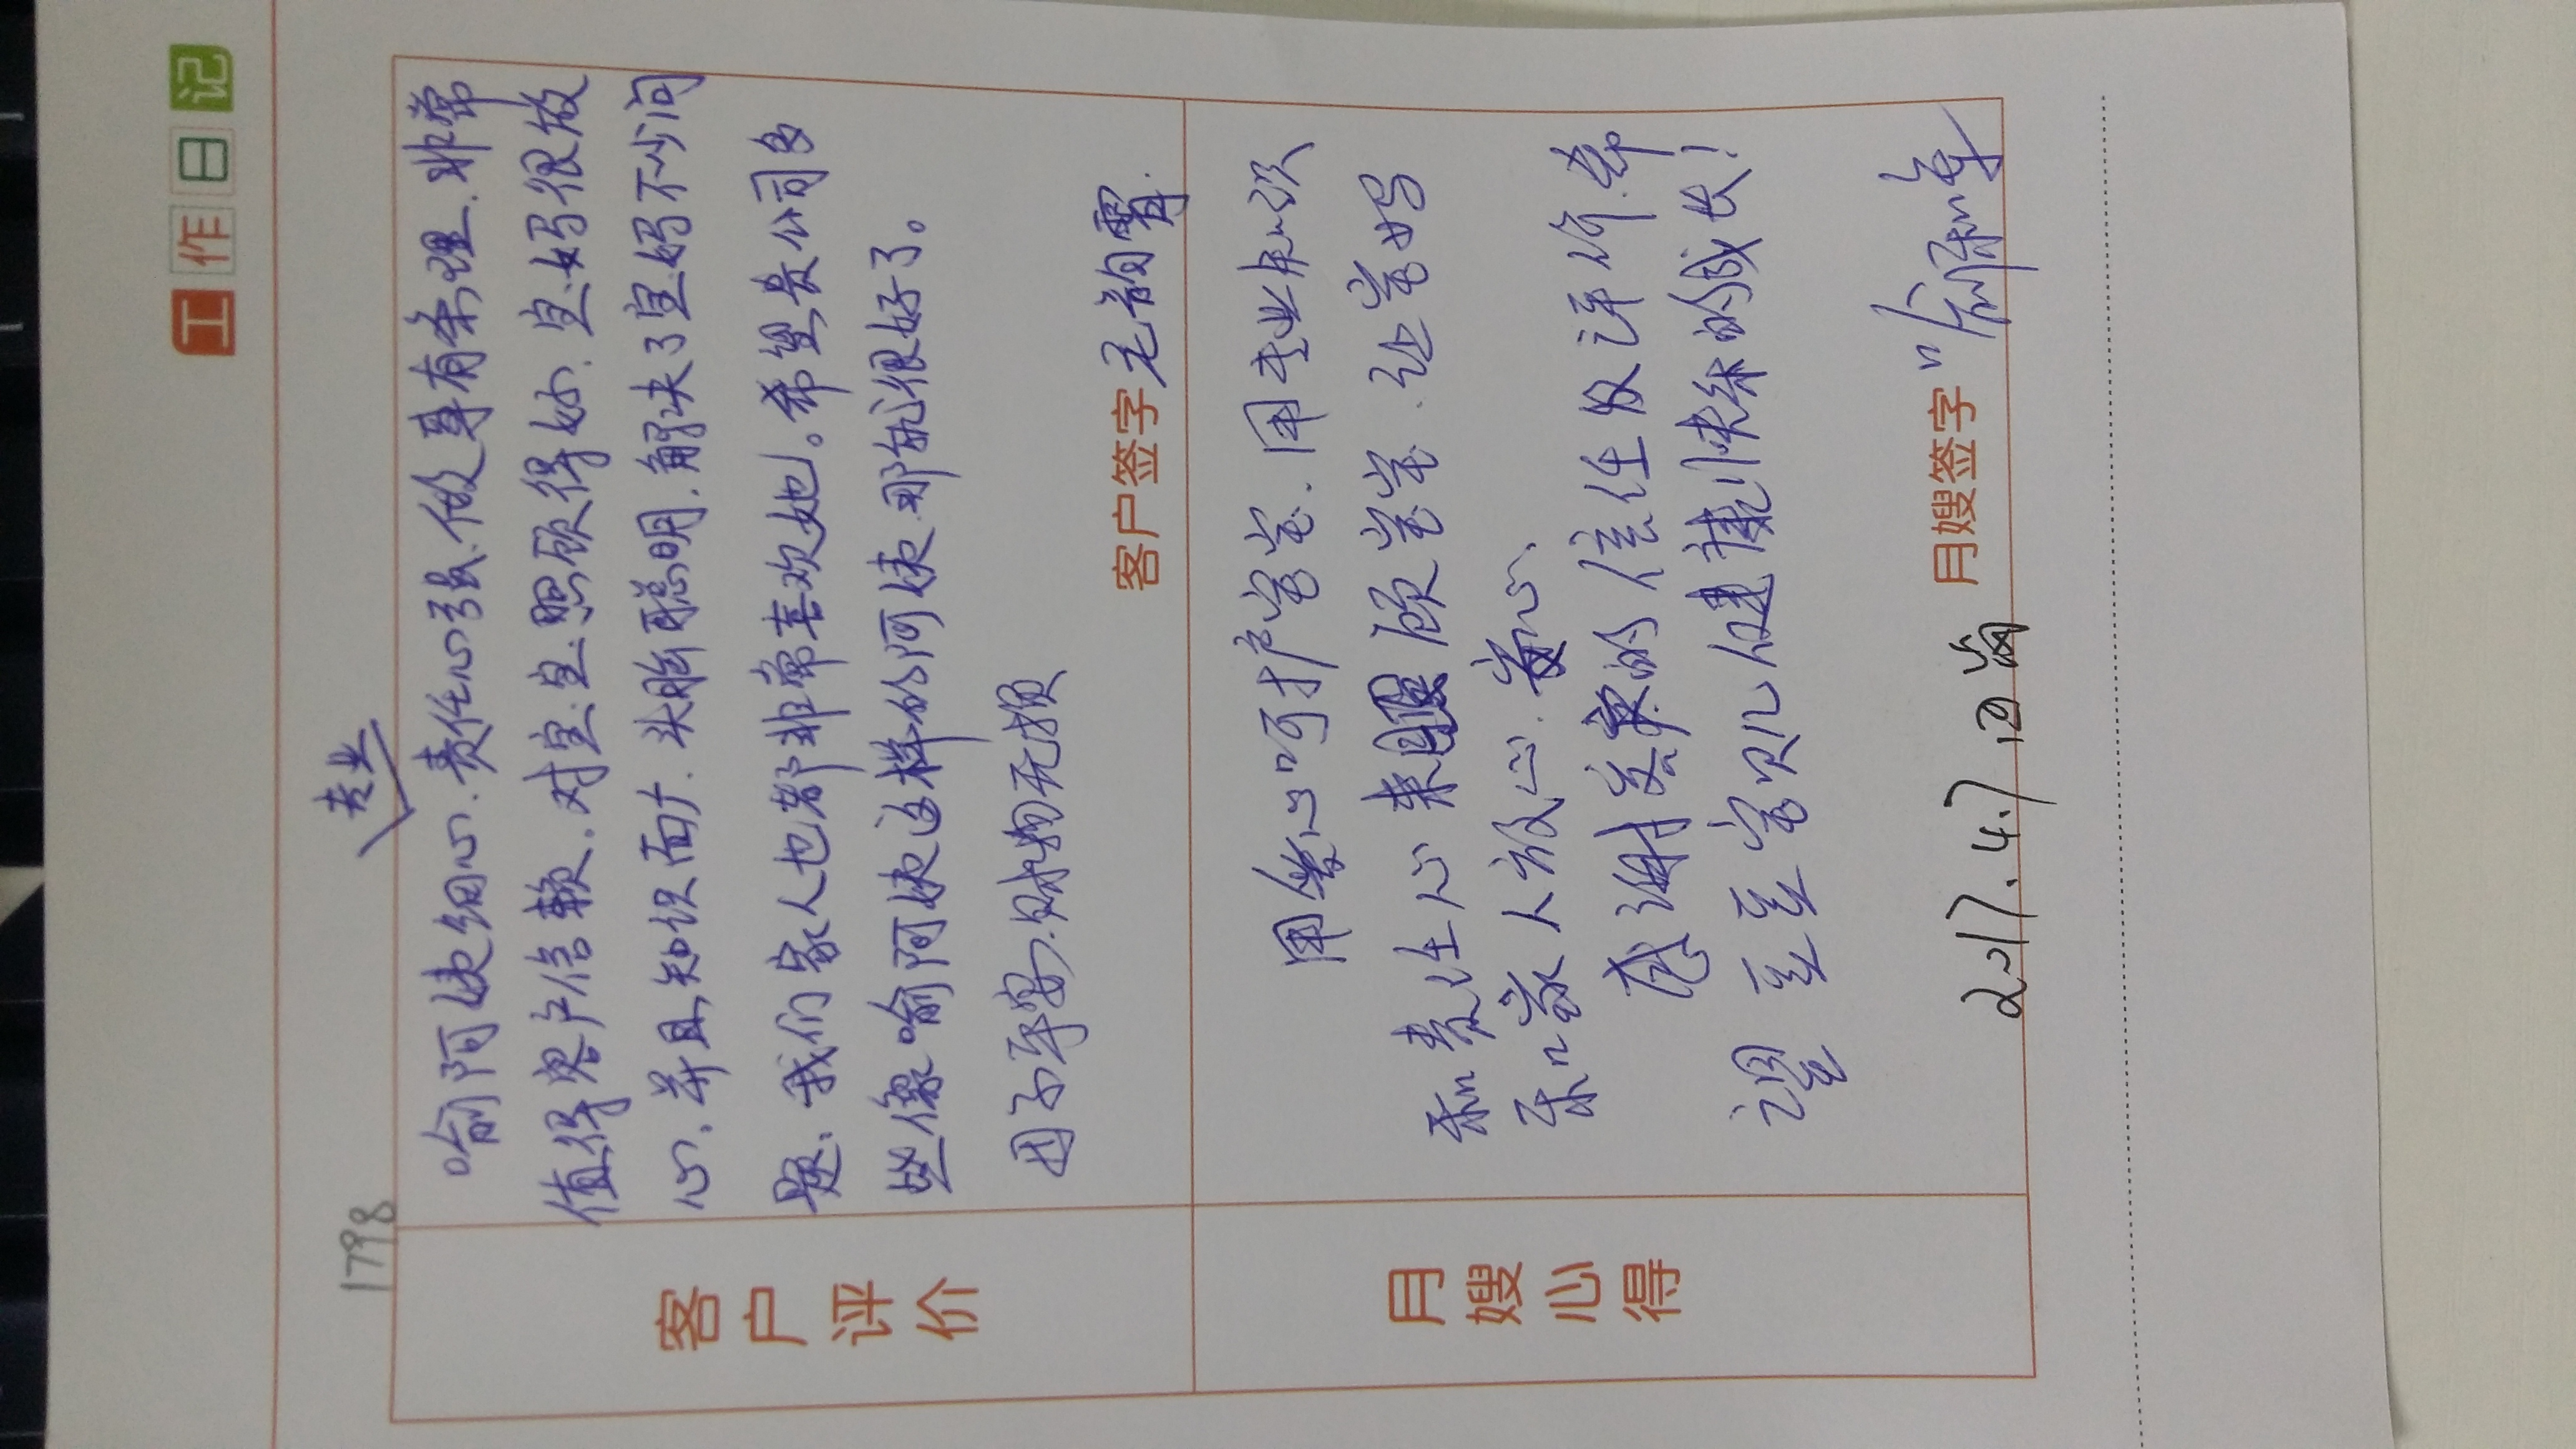 工作日记
1798
专业
喻阿姨细心.责任心强.做事有条理.非常
值得客户信赖.对宝宝照顾得好.宝妈很放
心.并且知识面广.头脑聪明.解决了宝妈不少问
题.我们家人也都非常喜欢她。希望贵公司多
些像喻阿姨这样的阿姨.那就很好了。
因工作
客户评价
客户签字
用爱心呵护宝宝.用专业知识
和责任心来照顾宝宝.让宝妈
和家人放心.
感谢宝家的信任及评价.希
望宝宝儿健康快乐的成长!
月嫂心得
2017.4.7日
月嫂签字